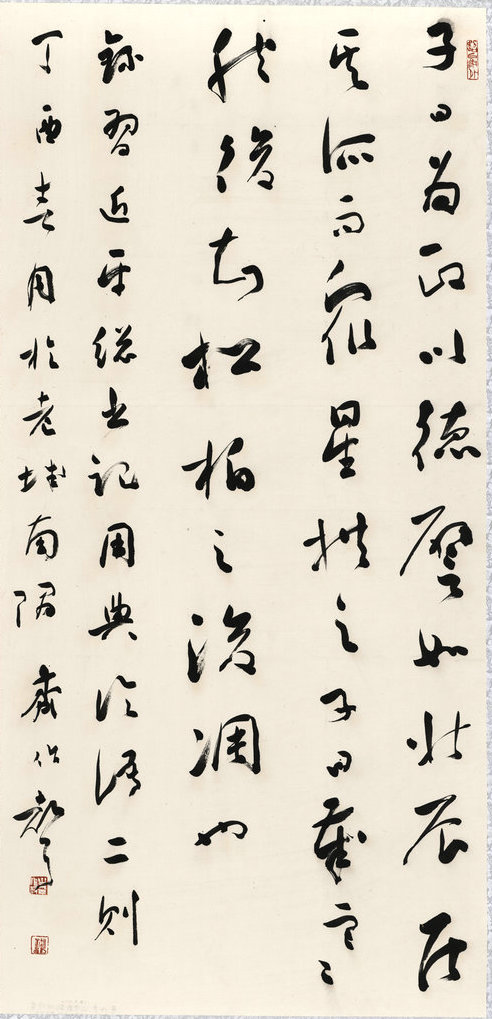 子曰為政以德譬如北辰居
其所而衆星拱之子曰歲寒
然後知松柏之後凋也
錄習近平總書記用典論語二則
丁酉春月於老城南隅